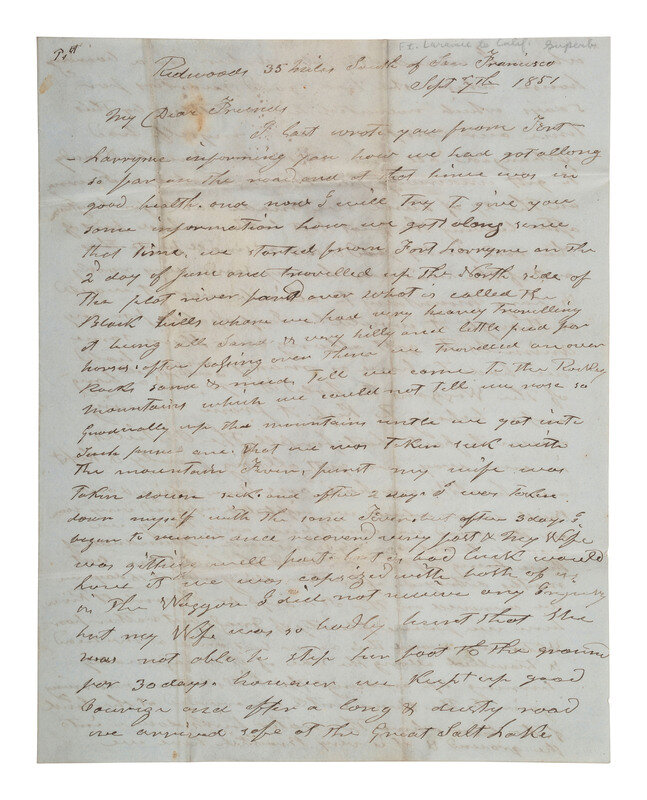 Ft. Laramie to Calif. Superb
Redwoods 35 Miles South of San Francisco
Sept 7th 1851
My Dear Friends
I last wrote you from Fort
Larryme informing you how we had got allong
so far on the road and at that time was in
good health. and now I will try to give you
some information how we got along since
that time, we started from Fort Larryme on the
2d day of June and travelled up the North side of
the plat river past over what is called the
Black hills where we had very heavy travelling
it being all sand & very hilly and little feed for
horses. after passing over these we travelled on over
Rocks sand & mud, till we come to the Rockey
Mountains which we could not tell we rose so
Gradually up the mountains untle we got into
Such air that we was taken sick with
the mountain Fever, furst my wife was
taken down sick. and after 2 days I was taken
down myself with the same Fever but after 3 days I
began to recover and recoverd very fast & My Wife
was gitting well fast. but as bad luck would
have it we was capsized with both of us
in the Waggon I did not receive any Ingury
but my Wife was so badly hurt that She
was not able to step her foot to the ground
for 30 days. however we kept up good
Courige and after a long & dusty road
we arrived safe at the Great Salt Lake